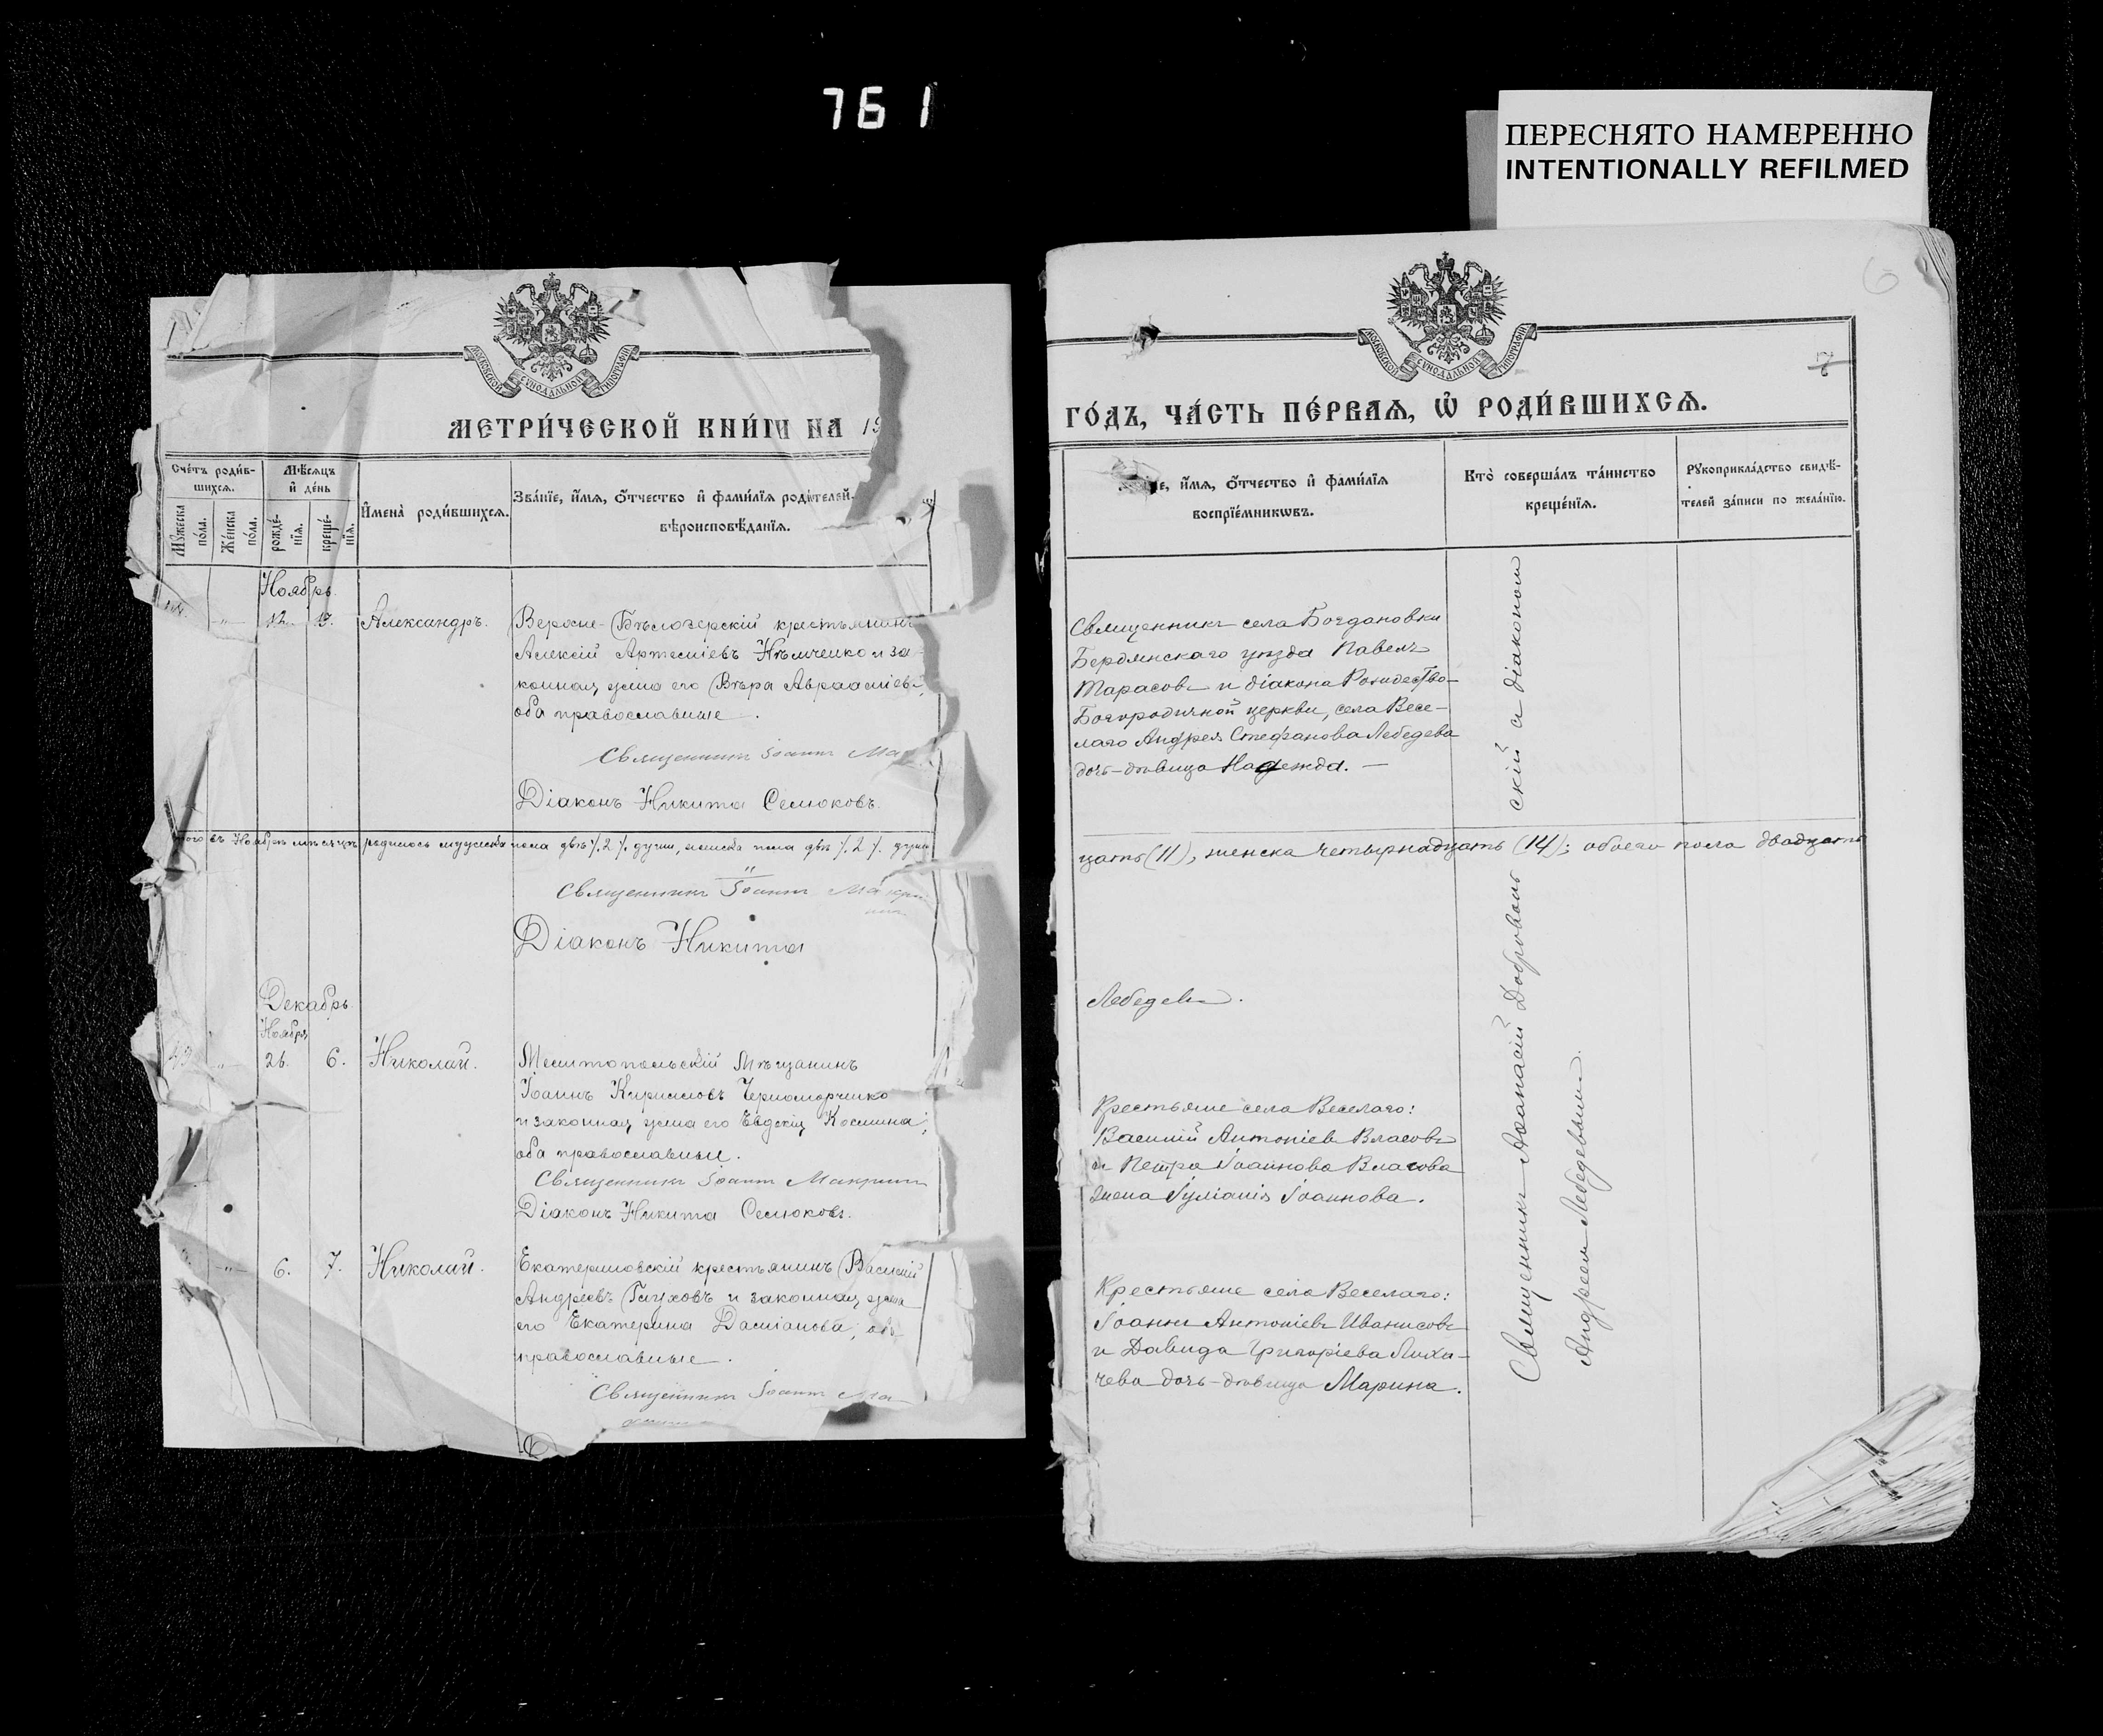 761
ПЕРЕСНЯТО НАМЕРЕННО
INTENTIONALLY REFILMED
МОСКОВСКОЙ СѴНОДАЛЬНОЙ ТИПОГРАФІИ
МЕТРИ́ЧЕСКОЙ КНИ́ГИ НА 19
Сче́тъ роди́в-
шихсѧ.
Мꙋжеска по́ла.
Же́нска по́ла.
Мѣ́сѧцъ
и҆ де́нь
рожде́-
нїѧ.
креще́-
нїѧ.
И҆мена̀ роди́вшихсѧ.
Зва́нїе, и҆́мѧ, ѻ҆́тчество и҆ фами́лїѧ роди́телей,
вѣроисповѣ́данїѧ.
Ноябрь
12. 13. Александръ.
Верхне-Бѣлозерскій крестьянинъ
Алексій Артеміевъ Нѣмченко и за-
конная жена его Вѣра Авраамiев
оба православные.
Священникъ Іоаннъ Мак
Діаконъ Никита Семюковъ.
того въ Ноябрѣ мѣсяцѣ родилось мужеска пола двѣ ٪ 2 ٪ души, женска пола двѣ ٪ 2 ٪ души
Священникъ Іоаннъ Макри
Діаконъ Никита
Декабрь
Ноября
26. 6. Николай.
Мелитопольскій Мѣщанинъ
Іоаннъ Кириловъ Черноморченко
и законная жена его Евдокія Космина;
оба православные.
Священникъ Іоаннъ Макрин
Діаконъ Никита Семюковъ.
6. 7. Николай.
Екатериновскій крестьянинъ Василій
Андреевъ Глуховъ и законная жена
его Екатерина Даміанова; оба
православные.
Священникъ Іоаннъ Ма
6
7
МОСКОВСКОЙ СѴНОДАЛЬНОЙ ТИПОГРАФІИ
ГО́ДЪ, ЧА́СТЬ ПЕ́РВАѦ, Ѡ҆ РОДИ́ВШИХСѦ.
е, и҆́мѧ, ѻ҆́тчество и҆ фами́лїѧ
воспрїе́мникѡвъ.
Кто̀ соверша́лъ та́инство
креще́нїѧ.
Рꙋкоприкла́дство свидѣ́-
телей за́писи по жела́нїю.
Священникъ села Богдановки
Бердянскаго уѣзда Павелъ
Тарасовъ и діакона Рождество-
Богородичной церкви, села Весе-
лаго Андрея Стефанова Лебедева
дочь-дѣвица Надежда. —
цать (11), женска четырнадцать (14); обоего пола двадцать
Лебедевъ.
Крестьяне села Веселаго:
Василій Антоніевъ Власовъ
и Петра Іоаннова Власова
жена Іуліанія Іоаннова.
Крестьяне села Веселаго:
Іоаннъ Антоніевъ Иванисовъ
и Давида Григоріева Лиха-
чева дочь-дѣвица Марина.
Священникъ Аѳанасій Добровольскій съ діакономъ
Андреемъ Лебедевымъ.